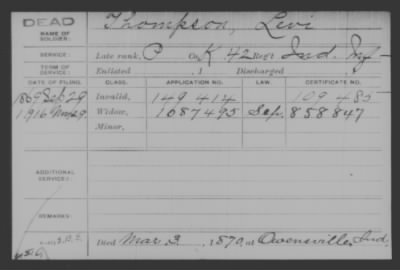 DEAD
NAME OF SOLDIER: Thompson, Levi
SERVICE: Late rank, P Co. K 42 Reg't Ind. Inf
TERM OF SERVICE: Enlisted 1 Discharged
DATE OF FILING. CLASS. APPLICATION NO. LAW. CERTIFICATE NO.
1869 Feb 29 Invalid, 149 414 109 485
1916 Widow, 1087495 Sep. 858847
Minor,
ADDITIONAL SERVICE:
REMARKS:
Died Mar 3, 1870, at Owensville, Ind.